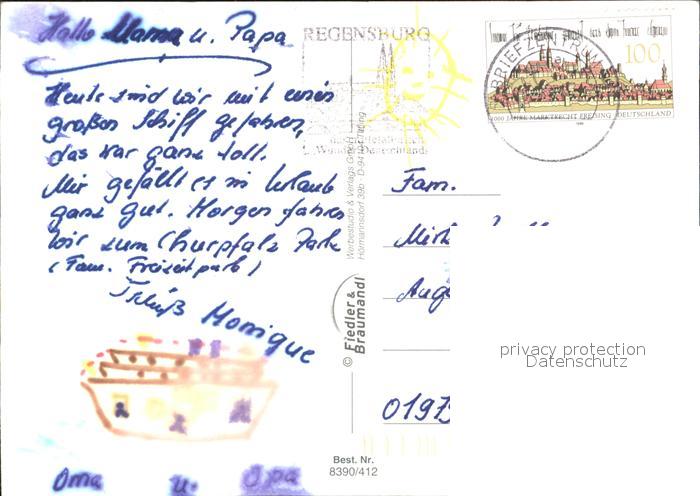 Hallo Mama u. Papa
Heute sind wir mit einen
großen Schiff gefahren,
das war ganz toll.
Mir gefällt es im Urlaub
ganz gut. Morgen fahren
wir zum Churpfalz Park
(Fam. Freizeitpark)
Tschüß Monique
Oma u. Opa
REGENSBURG
BRIEFZENTRUM
100
1000 JAHRE MARKTRECHT FREISING DEUTSCHLAND
Werbestudio & Verlags GmbH
Hörmannsdorf 39b · D-94
© Fiedler &
Braumandl
Best. Nr.
8390/412
Fam.
0197
privacy protection
Datenschutz